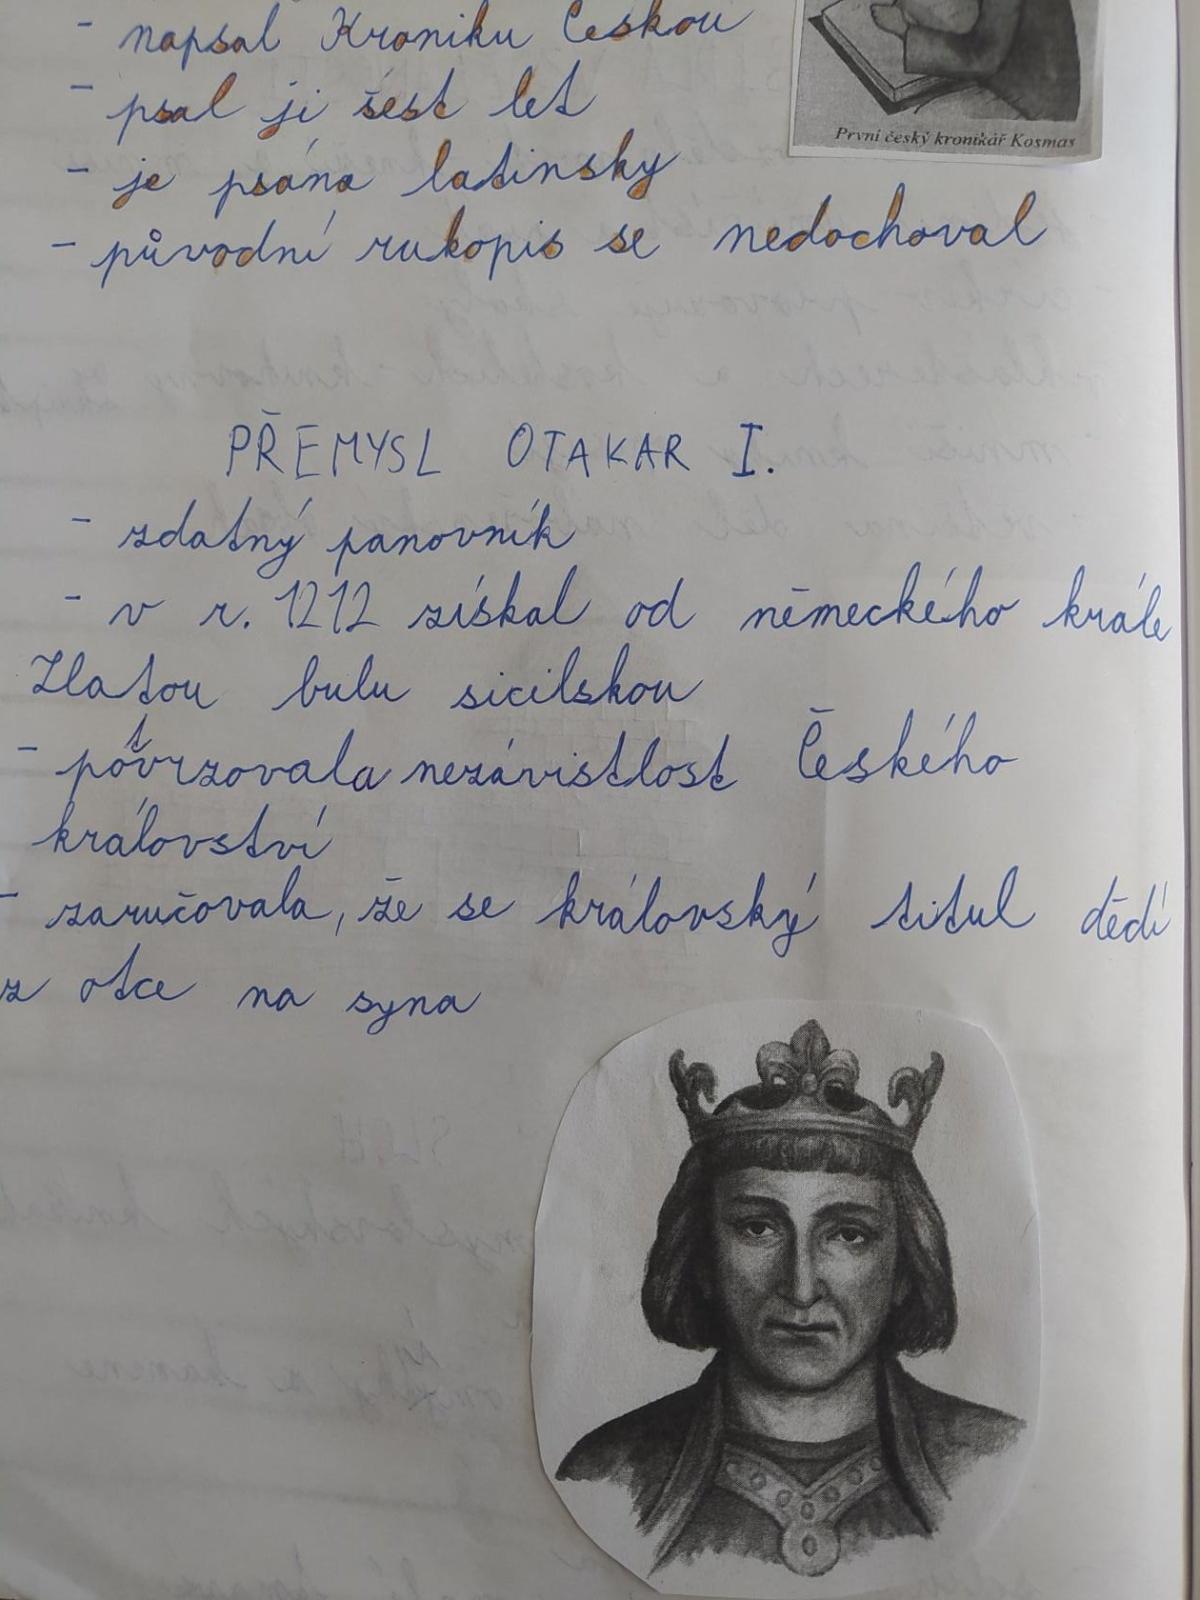 - napsal Kroniku českou
- psal ji šest let
První český kronikář Kosmas
- je psána latinsky
- původní rukopis se nedochoval
PŘEMYSL OTAKAR I.
- zdatný panovník
- v r. 1212 získal od německého krále
Zlatou bulu sicilskou
- potvrzovala nezávistlost Českého
království
- zaručovala, že se královský titul dědí
z otce na syna